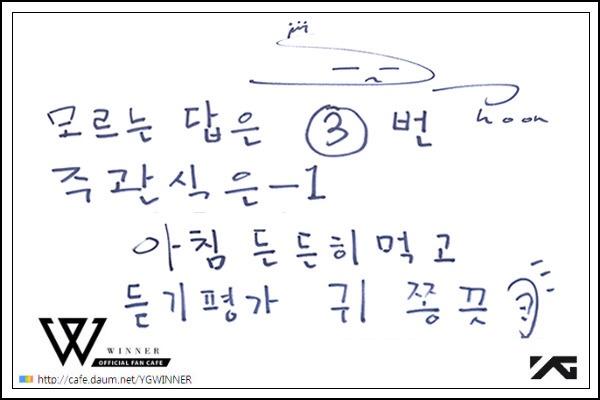 jin
hoon
모르는 답은 ③ 번
주관식은 -1
아침 든든히 먹고
듣기평가 귀 쫑끗
W
WINNER
OFFICIAL FAN CAFE
http://cafe.daum.net/YGWINNER
YG